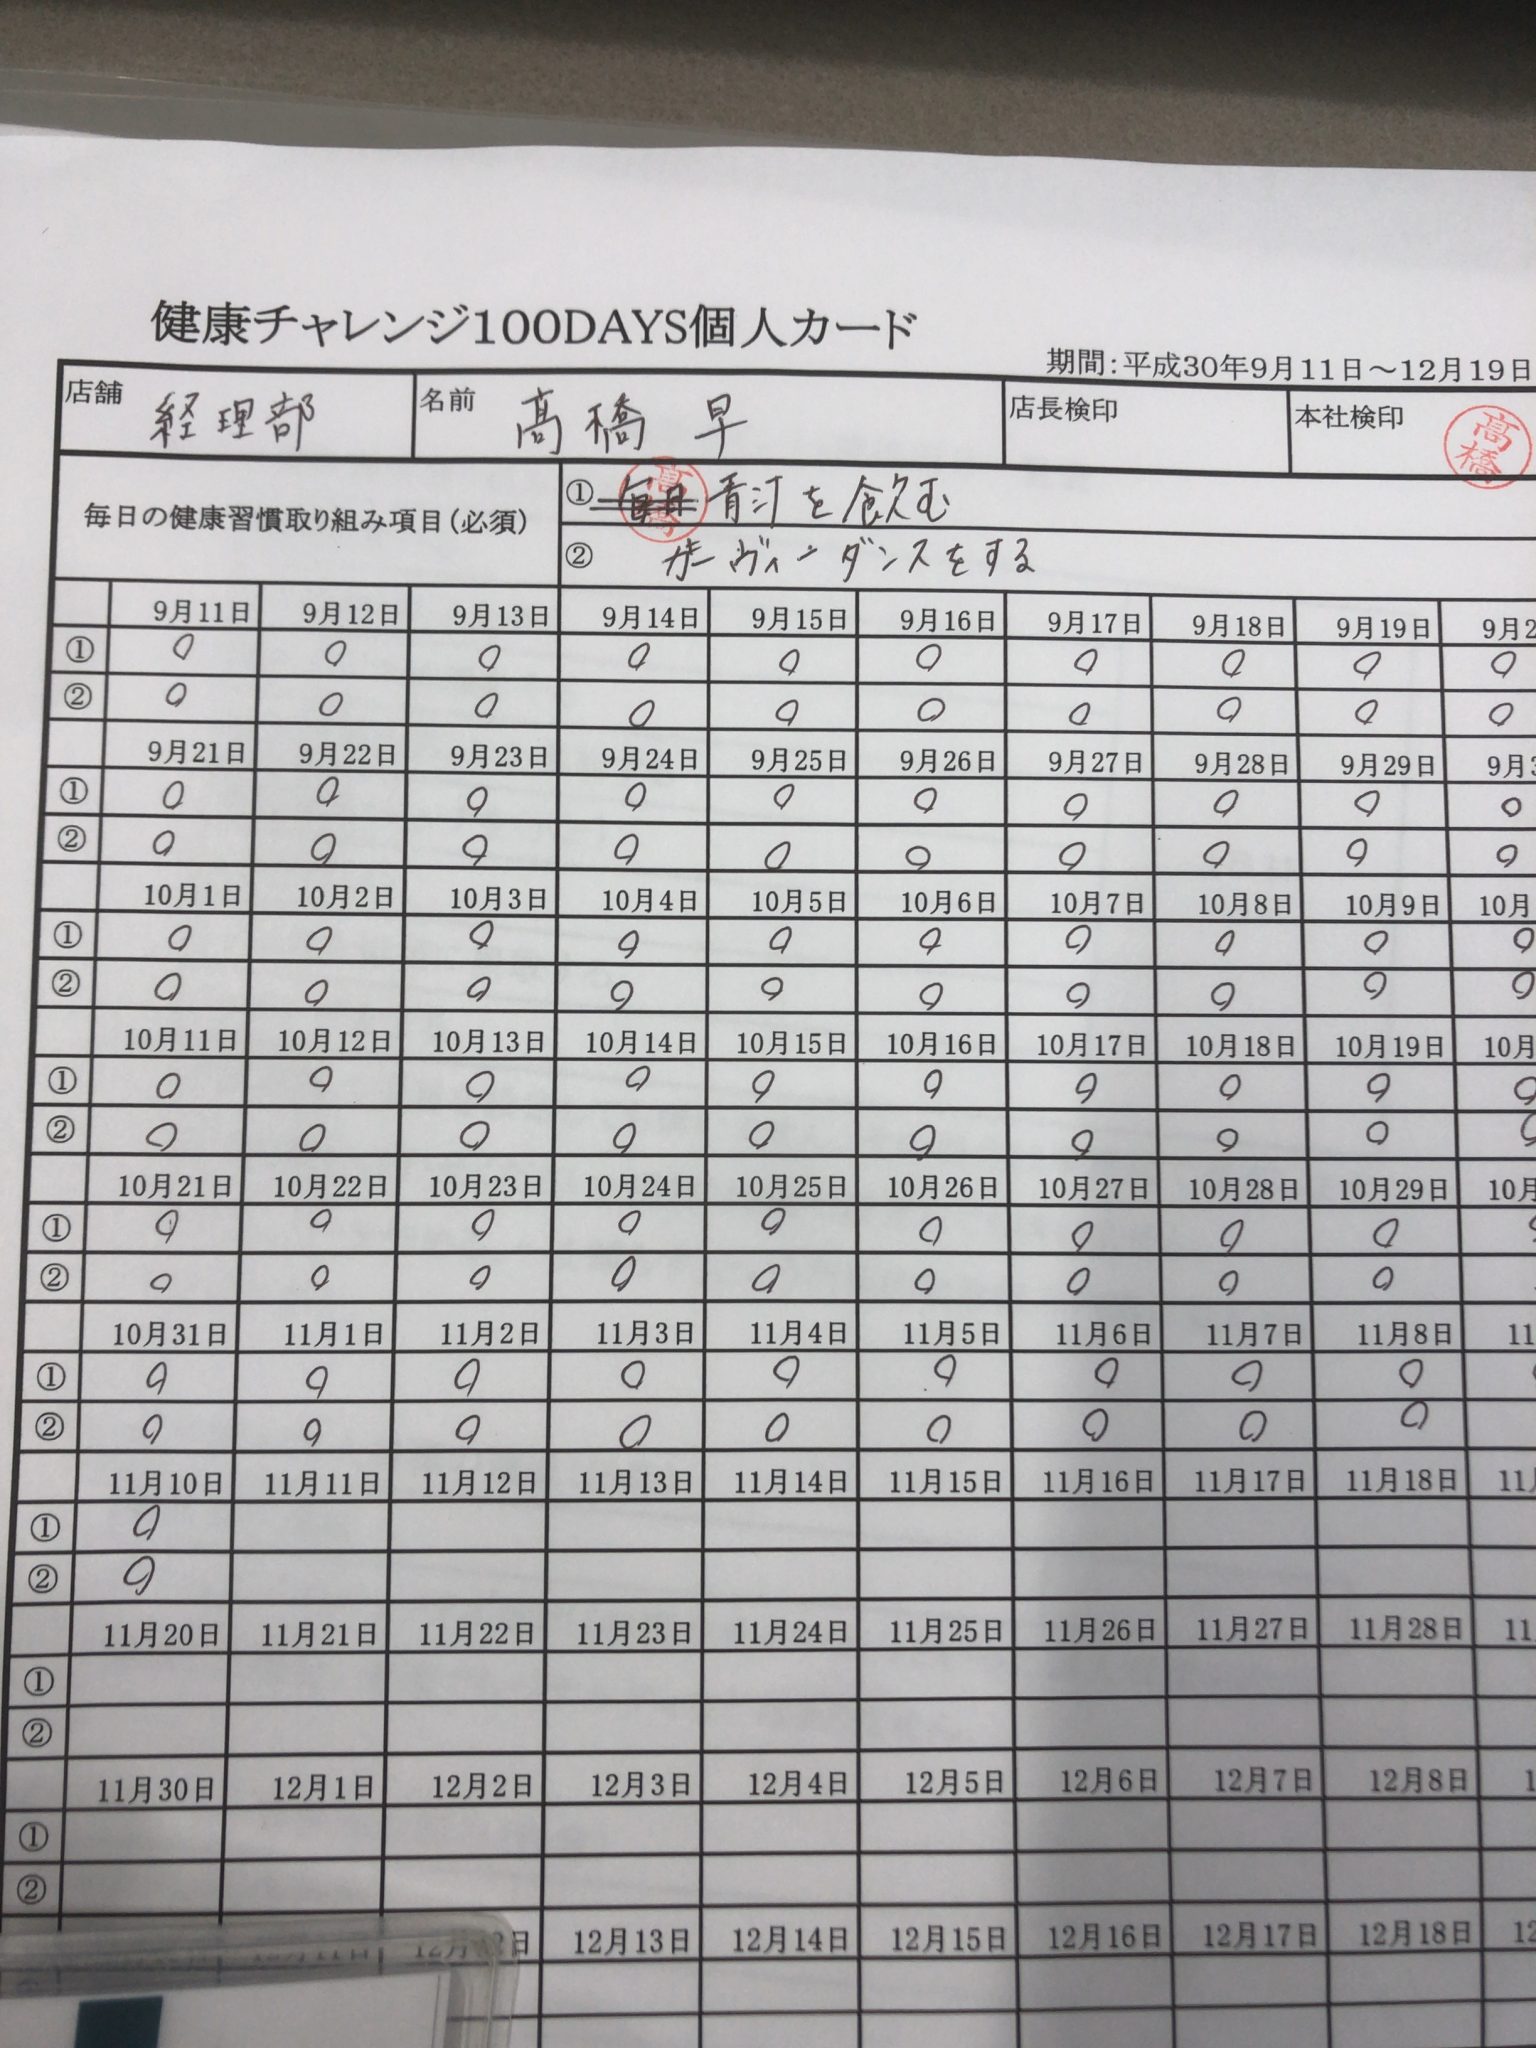 健康チャレンジ100DAYS個人カード
期間:平成30年9月11日～12月19日
店舗 経理部 名前 髙橋 早 店長検印 本社検印 髙橋
毎日の健康習慣取り組み項目(必須)
① 青汁を飲む
② カーヴィーダンスをする
9月11日 9月12日 9月13日 9月14日 9月15日 9月16日 9月17日 9月18日 9月19日 9月2
① 0 0 0 0 0 0 0 0 0 0
② 0 0 0 0 0 0 0 0 0 0
9月21日 9月22日 9月23日 9月24日 9月25日 9月26日 9月27日 9月28日 9月29日 9月3
① 0 0 0 0 0 0 0 0 0 0
② 0 0 0 0 0 0 0 0 0 0
10月1日 10月2日 10月3日 10月4日 10月5日 10月6日 10月7日 10月8日 10月9日 10月
① 0 0 0 0 0 0 0 0 0 0
② 0 0 0 0 0 0 0 0 0 0
10月11日 10月12日 10月13日 10月14日 10月15日 10月16日 10月17日 10月18日 10月19日 10月
① 0 0 0 0 0 0 0 0 0 0
② 0 0 0 0 0 0 0 0 0 0
10月21日 10月22日 10月23日 10月24日 10月25日 10月26日 10月27日 10月28日 10月29日 10月
① 0 0 0 0 0 0 0 0 0
② 0 0 0 0 0 0 0 0 0
10月31日 11月1日 11月2日 11月3日 11月4日 11月5日 11月6日 11月7日 11月8日 11
① 0 0 0 0 0 0 0 0 0
② 0 0 0 0 0 0 0 0 0
11月10日 11月11日 11月12日 11月13日 11月14日 11月15日 11月16日 11月17日 11月18日 11
① 0
② 0
11月20日 11月21日 11月22日 11月23日 11月24日 11月25日 11月26日 11月27日 11月28日 11
①
②
11月30日 12月1日 12月2日 12月3日 12月4日 12月5日 12月6日 12月7日 12月8日 1
①
②
12月13日 12月14日 12月15日 12月16日 12月17日 12月18日 12